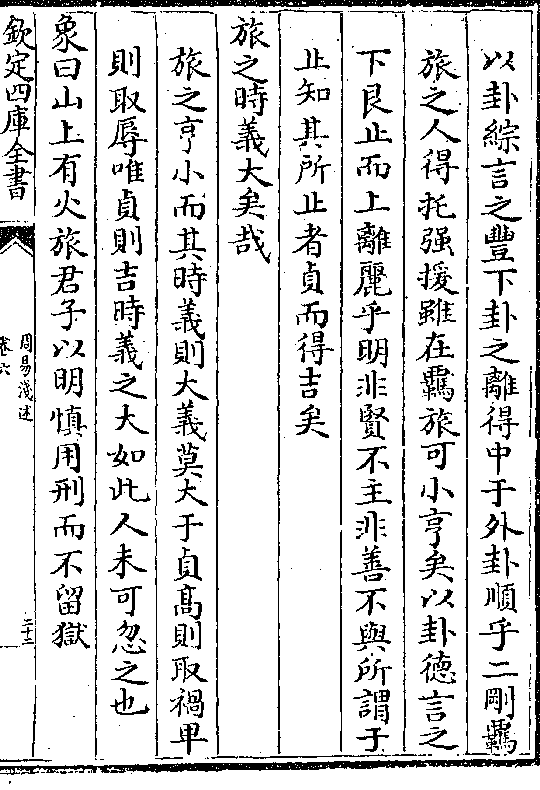 以卦綜言之豐下卦之離得中于外卦順乎二剛羈
旅之人得托强援雖在羈旅可小亨矣以卦德言之
下艮止而上離麗乎明非賢不主非善不與所謂于
止知其所止者貞而得吉矣
旅之時義大矣哉
旅之亨小而其時義則大義莫大于貞髙則取禍卑
則取辱唯貞則吉時義之大如此人未可忽之也
象曰山上有火旅君子以明慎用刑而不留獄
欽定四庫全書
周易淺述
卷六
二十三